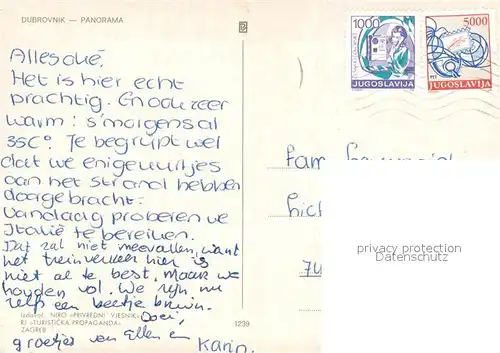 DUBROVNIK — PANORAMA
1000
JUGOSLAVIJA
5000
PTT
JUGOSLAVIJA
Het is hier echt
prachtig. En ook zeer
warm: 's morgens al
35C°. Je begrijpt wel
dat we enige uurtjes
aan het strand hebben
doorgebracht.
Vandaag proberen we
Italië te bereiken.
Dat zal niet meevallen, want
het treinverkeer hier is
niet al te best. Maar we
houden vol. We zijn nu
zelfs een beetje bruin.
Doei,
groetjes van Ellen en
Karin.
Fam.
privacy protection
Datenschutz
Izdavač: NIRO »PRIVREDNI VJESNIK«
RJ »TURISTIČKA PROPAGANDA«
ZAGREB
1239